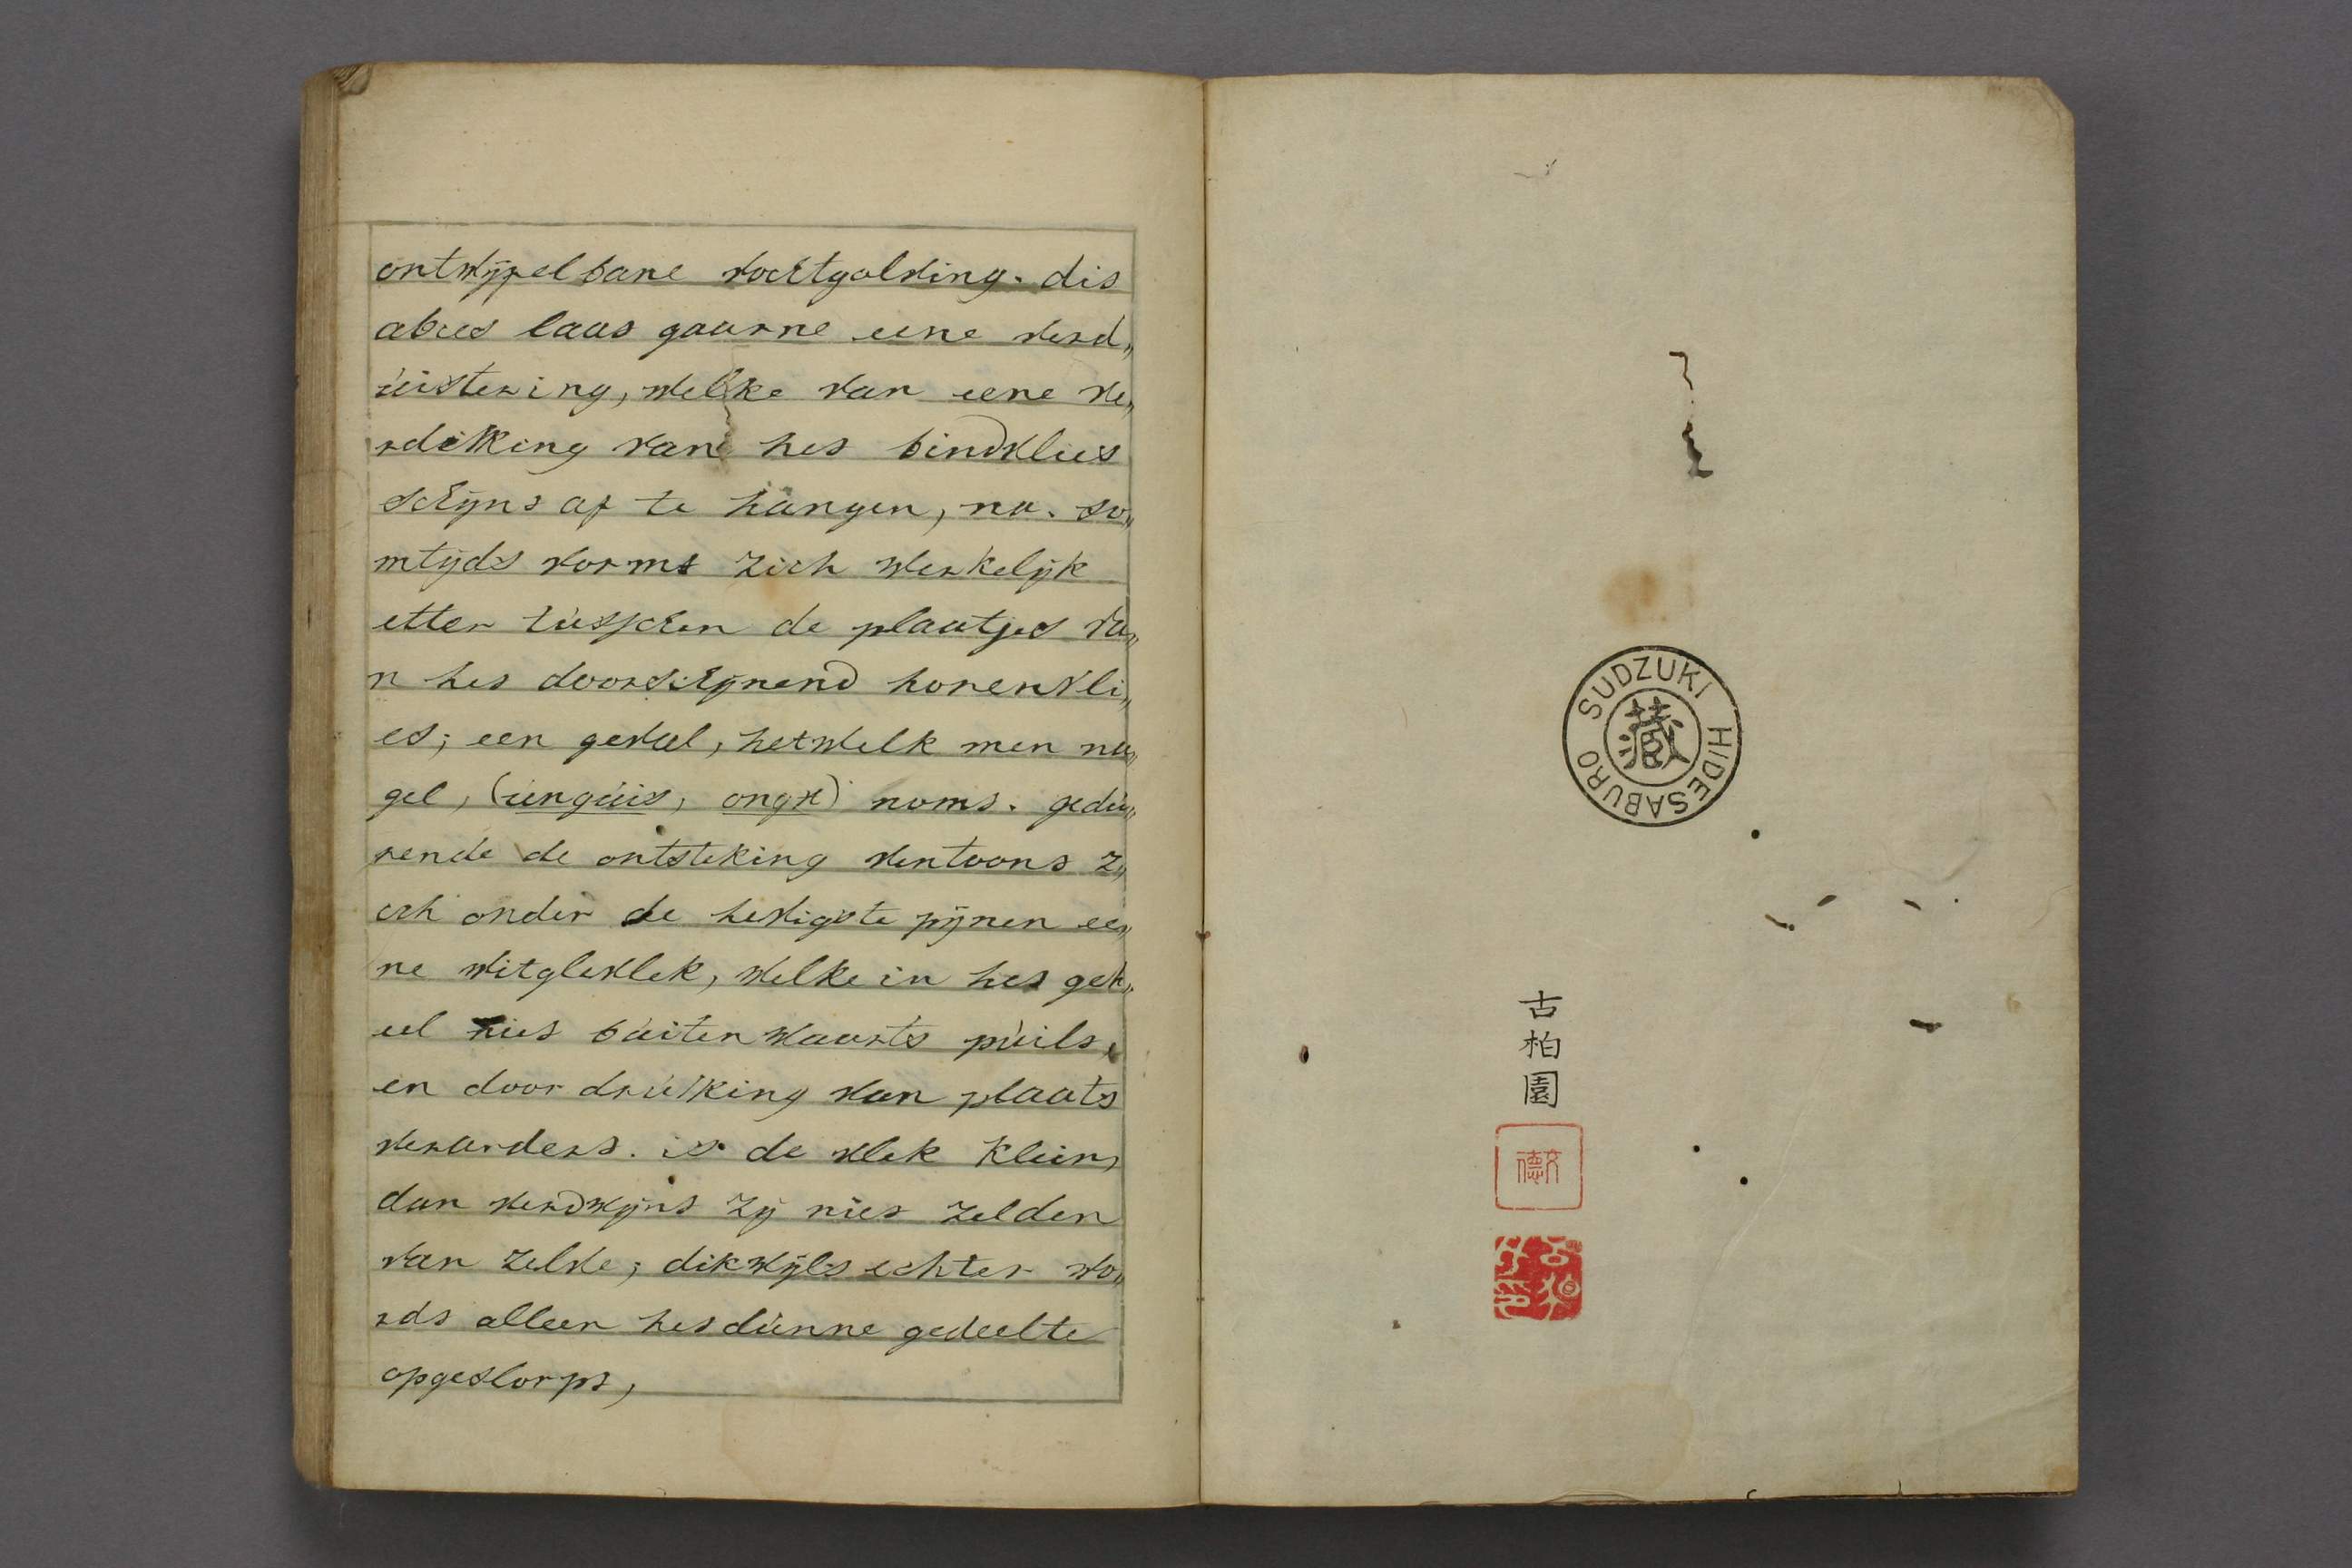 ontwijfelbare vochtgolving. dit
abces laat gaarne eene verd„
uistering, welke van eene ve„
rdikking van het bindvlies
schijnt af te hangen, na. so„
mtijds vormt zich werkelijk
etter tusschen de plaatjes va„
n het doorschijnend horenvli„
es; een geval, hetwelk men na„
gel, (unguis, onyx) nomt. gedu„
rende de ontsteking vertoont z„
ich onder de hevigste pijnen ee„
ne witgle vlek, welke in het geh„
eel niet buitenwaarts puilt,
en door drukking van plaats
verandert. is de vlek klein,
dan verdwijnt zij niet zelden
van zelve; dikwijls echter wo„
rdt alleen het dunne gedeelte
opgeslorpt,
SUDZUKI HIDESABURO
藏
古柏園